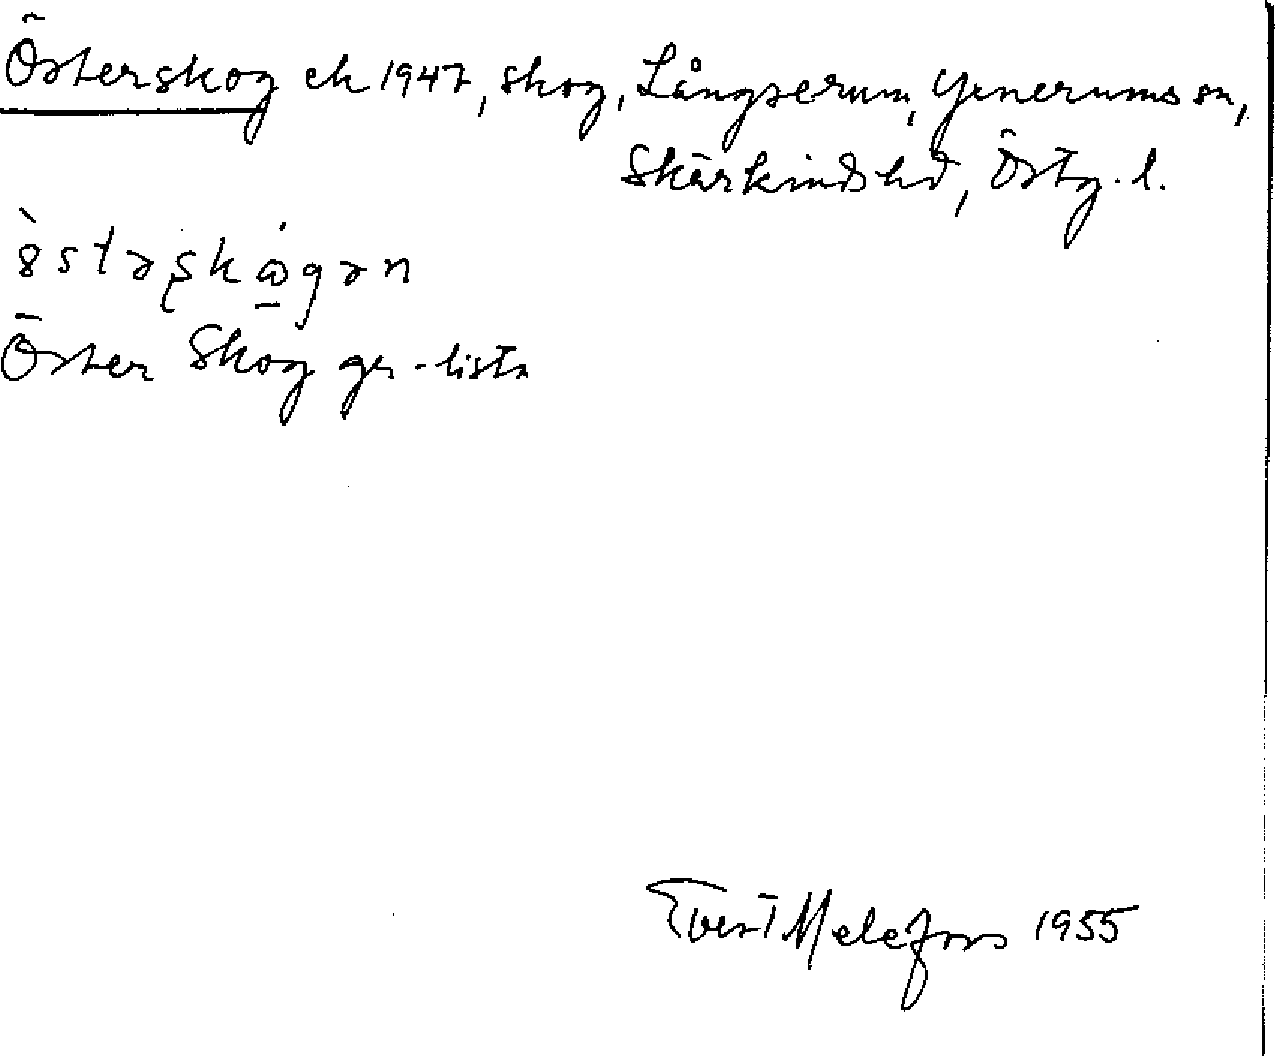 Österskog ek 1947, skog, Långserum, Yxnerums sn,
Skärkinds hd, Östg. l.
Öster Skog gs-lista
Evert Melefors 1955